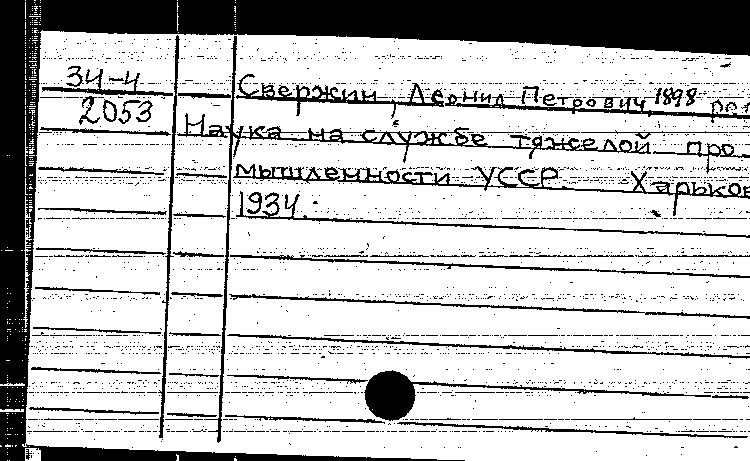 34-4
2053
Свержин, Леонид Петрович, 1898
Наука на службе тяжелой про-
мышленности УССР. Харьков
1934.